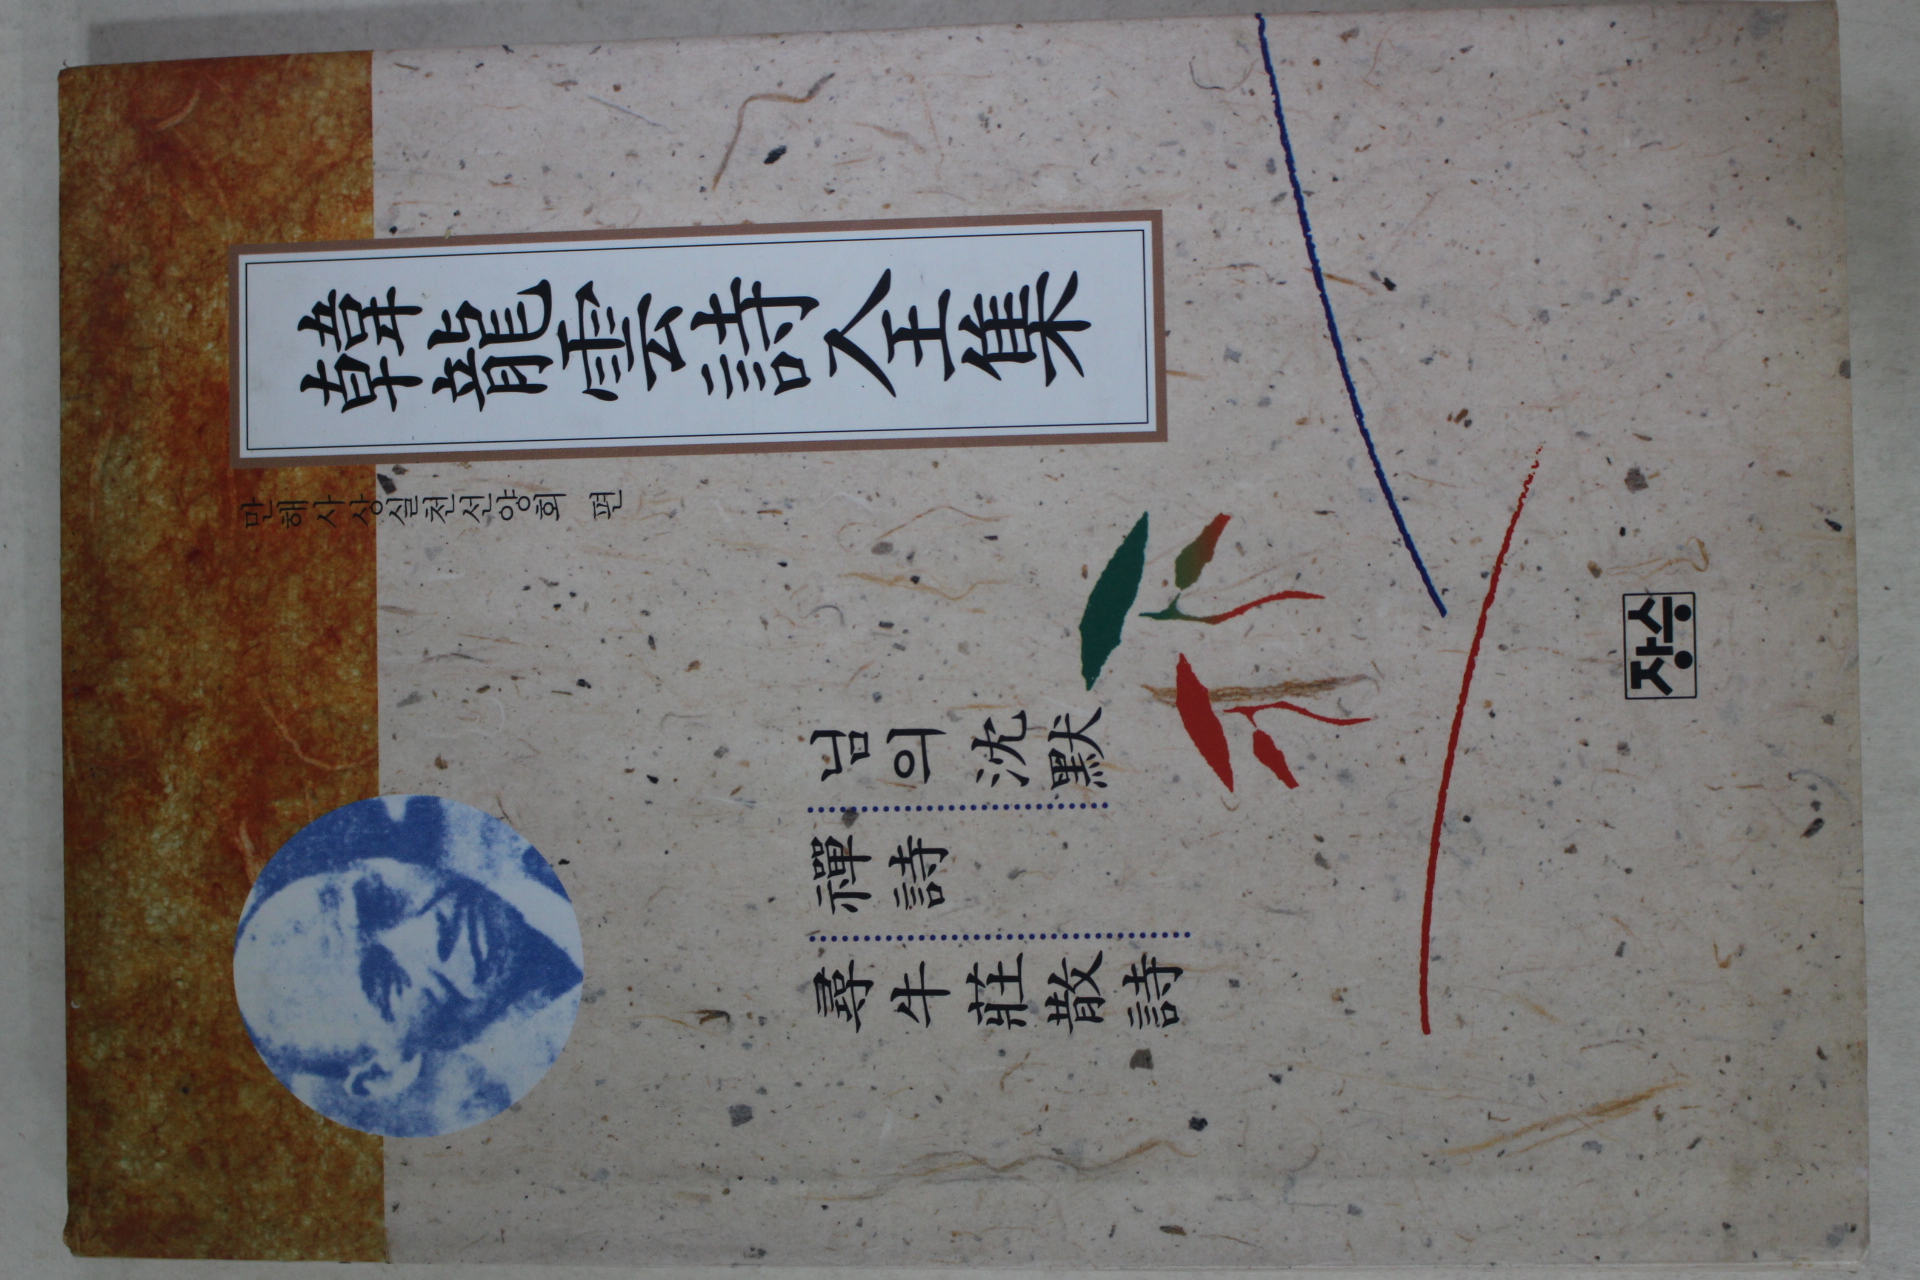 韓龍雲詩全集
만해사상실천선양회 편
님의 沈默
禪詩
尋牛莊散詩
장승